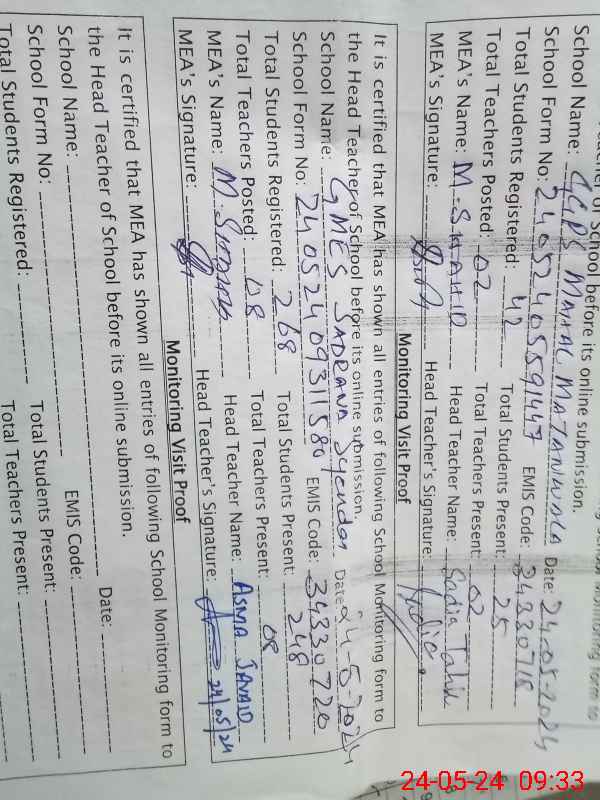 Teacher of School before its online submission.
School Name: GGPS MAHAL MATANWALA Date: 24-05-2024
School Form No: 2405240559 EMIS Code: 34330718
Total Students Registered: 42 Total Students Present: 25
Total Teachers Posted: 02 Total Teachers Present: 02
MEA's Name: M. SHAHID Head Teacher Name: Sadia Tahir
MEA's Signature: Head Teacher's Signature: Sadia
Monitoring Visit Proof
It is certified that MEA has shown all entries of following School Monitoring form to
the Head Teacher of School before its online submission.
School Name: GMES SADRANA Syendan Date: 24-5-2024
School Form No: 24052409311580 EMIS Code: 34330720
Total Students Registered: 268 Total Students Present: 248
Total Teachers Posted: 08 Total Teachers Present: 08
MEA's Name: M. SHAHID Head Teacher Name: ASMA JAVAID
MEA's Signature: Head Teacher's Signature: 24/05/24
Monitoring Visit Proof
It is certified that MEA has shown all entries of following School Monitoring form to
the Head Teacher of School before its online submission.
School Name: Date:
School Form No: EMIS Code:
Total Students Registered: Total Students Present:
Total Teachers Present:
24-05-24 09:33